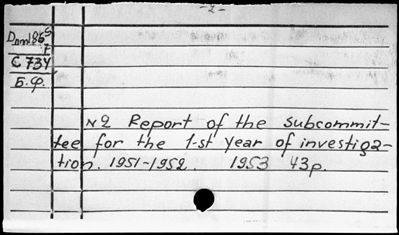 -2-
С 734
Б.Ф.
N2 Report of the subcommit-
tee for the 1-st year of investiga-
tion. 1951-1952. 1953 43p.